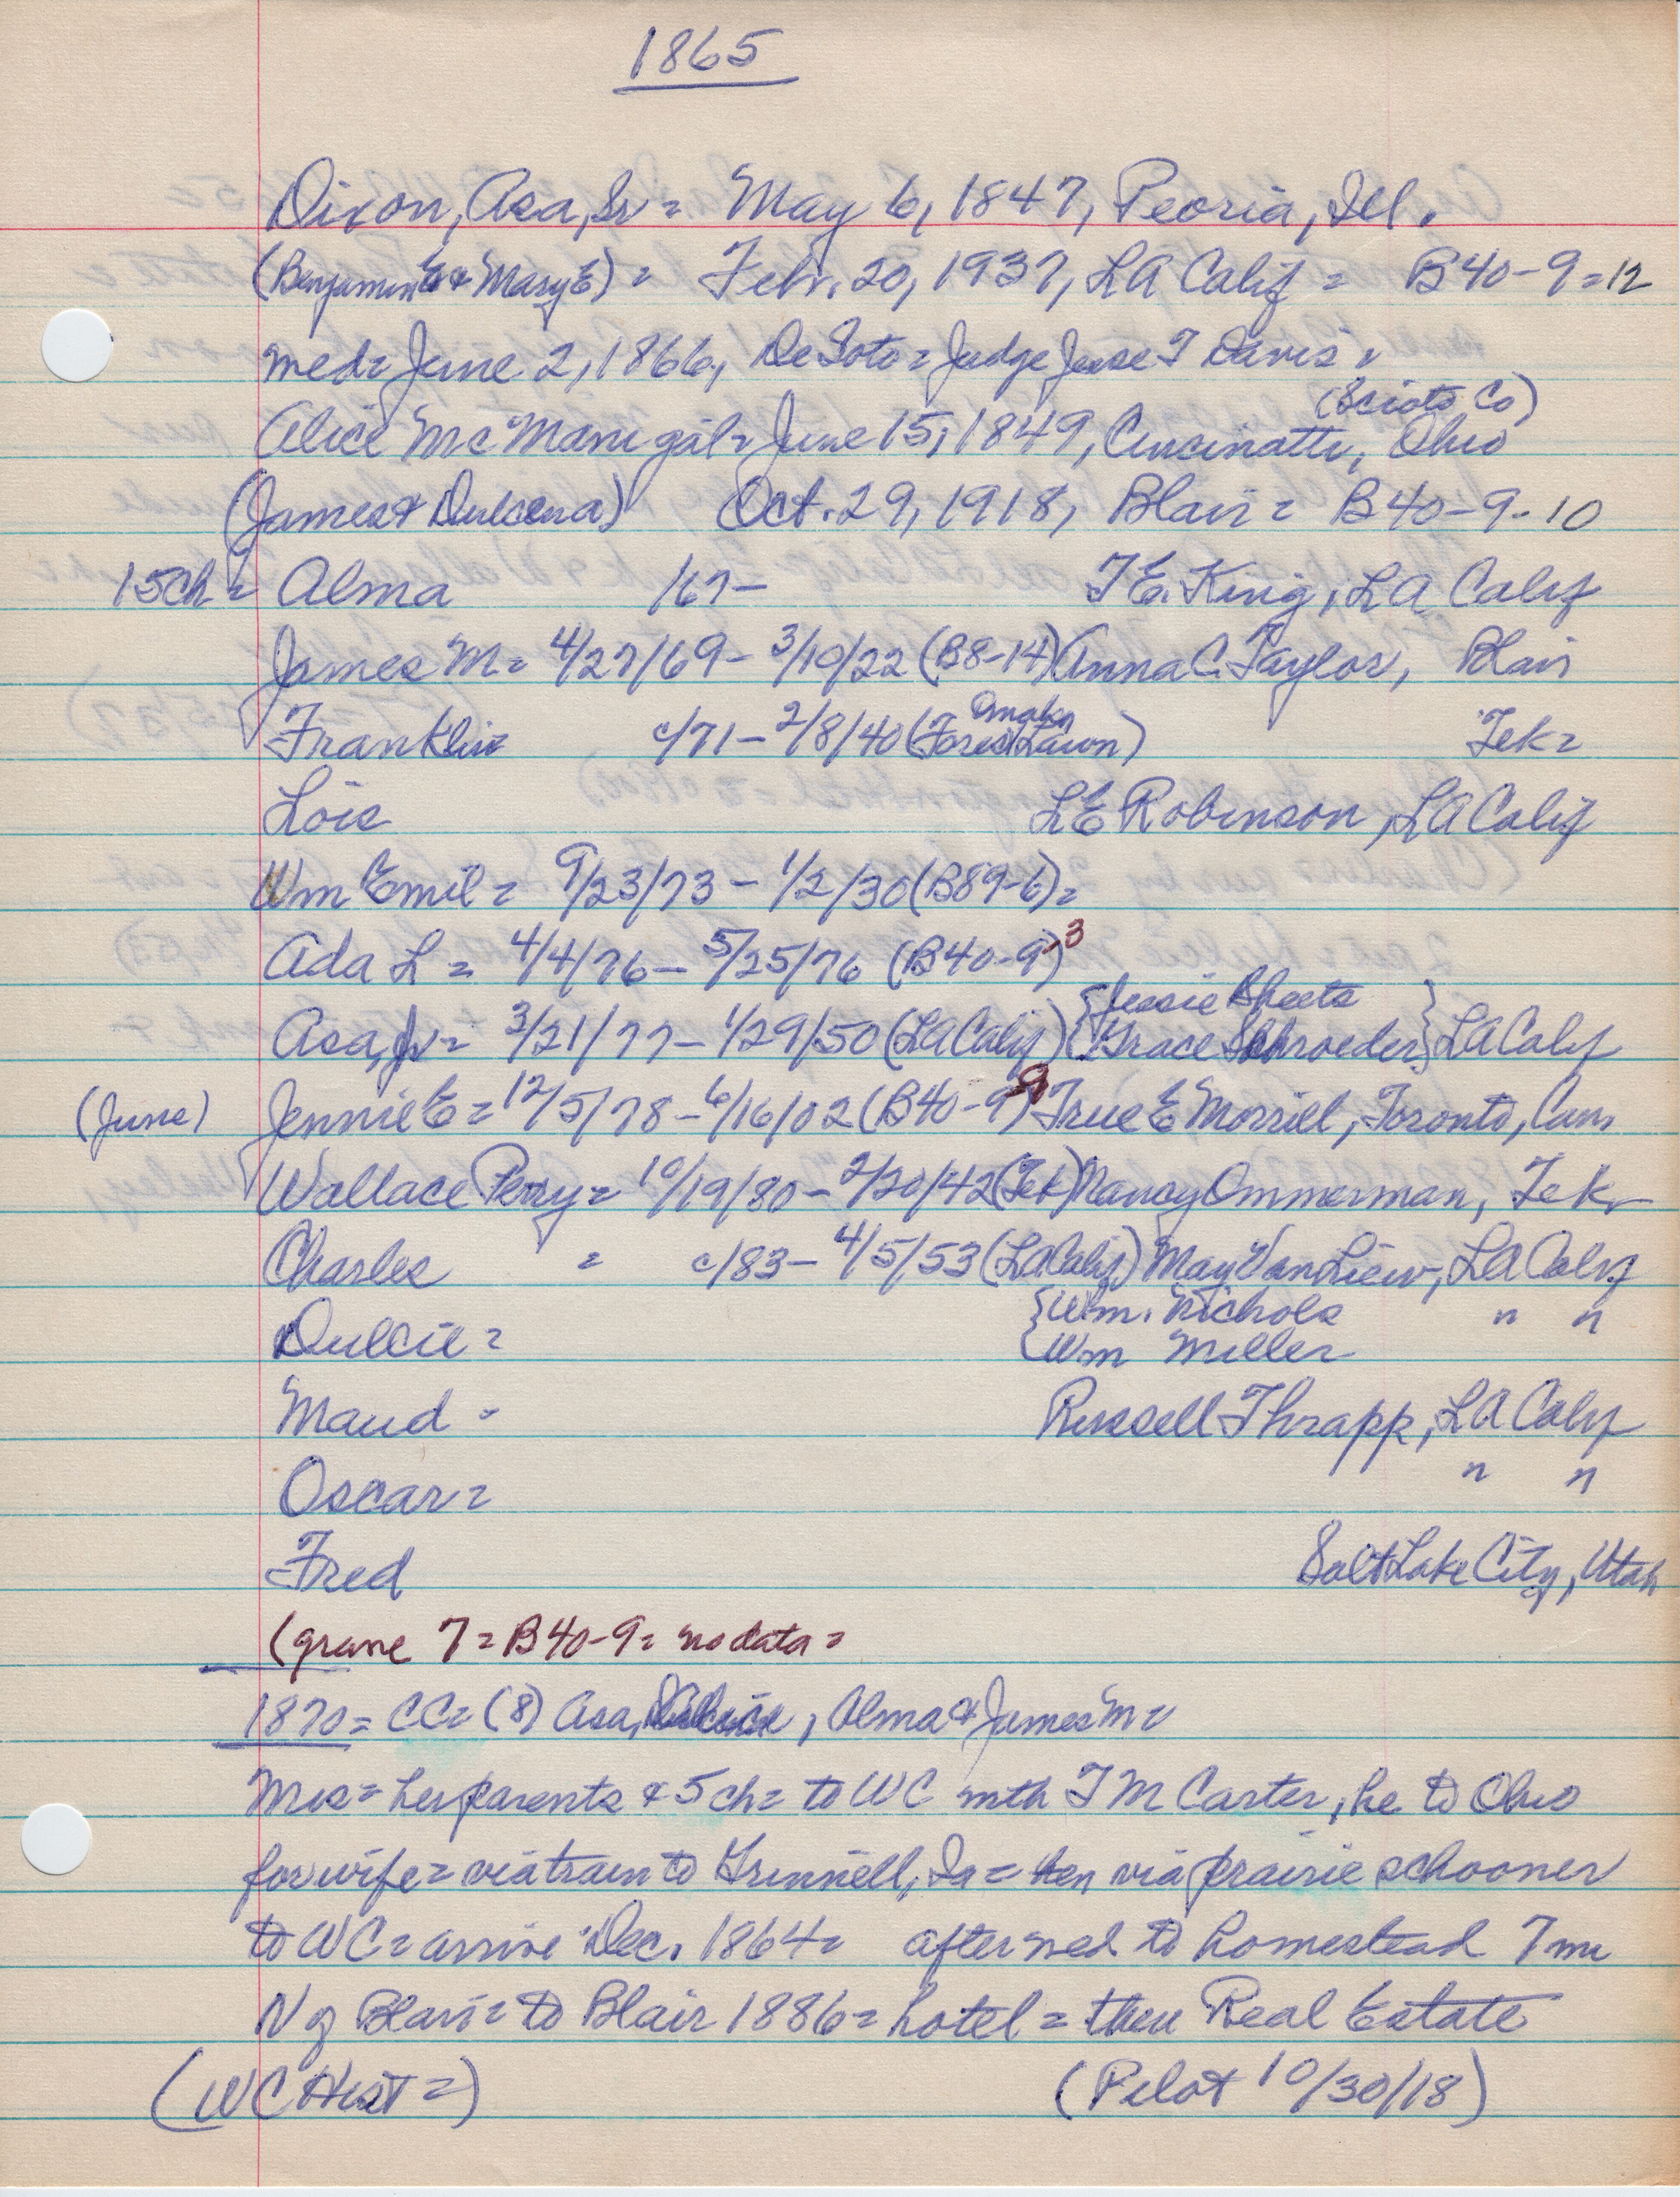 1865
Dixon, Asa, Sr = May 6, 1847, Peoria, Ill.
(Benjamin E & Mary E) = Febr. 20, 1937, LA Calif = B40-9=12
med= June 2, 1866, DeSoto = Judge Jesse T Davis =
(Scioto Co)
Alice McManigal = June 15, 1849, Cincinatti, Ohio
(James & Dulcena) Oct. 29, 1918, Blair = B40-9-10
15ch = Alma /67- T.E. King, LA Calif
James M = 4/27/69 - 3/10/22 (B8-14) Anna C. Taylor, Blair
Omaha
Franklin = c/71 - 2/8/40 (Forest Lawn) Tek =
Lois L E Robinson, LA Calif
Wm Emil = 9/23/73 - 1/2/30 (B89-6) =
Ada L = 4/4/76 - 5/25/76 (B40-9)-3
{Jessie Sheets }
Asa, Jr = 3/21/77 - 1/29/50 (LA Calif) {Grace Schroeder} LA Calif
(June) Jennie E = 12/5/78 - 6/16/02 (B40-9)-9 True E Morrill, Toronto, Can,
Wallace Perry = 10/19/80 - 2/20/42 (Tek) Nancy Ommerman, Tek
Charles = c/83 - 4/5/53 (LA Calif) May Van Liew, LA Calif
{Wm. Nichols " "
Dulcie = {Wm Miller
Maud = Russell Thrapp, LA Calif
Oscar = " "
Fred Salt Lake City, Utah
(grave 7 = B40-9 = no data =
1870 = CC = (8) Asa, , Alma & James M =
Mrs = her parents & 5 ch = to WC mth T M Carter, he to Ohio
for wife = via train to Grinnell, Ia = then via prairie schooner
to WC = arrive Dec. 1864 = after med to homestead 7 mi
N of Blair = to Blair 1886 = hotel = then Real Estate
(WC Hist =) (Pilot 10/30/18)